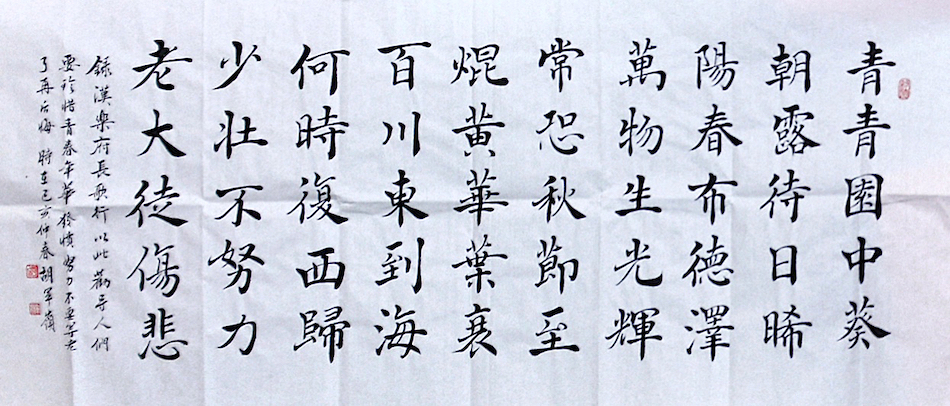 青青園中葵
朝露待日晞
陽春布德澤
萬物生光輝
常恐秋節至
焜黃華葉衰
百川東到海
何時復西歸
少壯不努力
老大徒傷悲
錄漢樂府長歌行以此勸导人們
要珍惜青春年華發憤努力不要等老
了再后悔時在己亥仲春胡軍